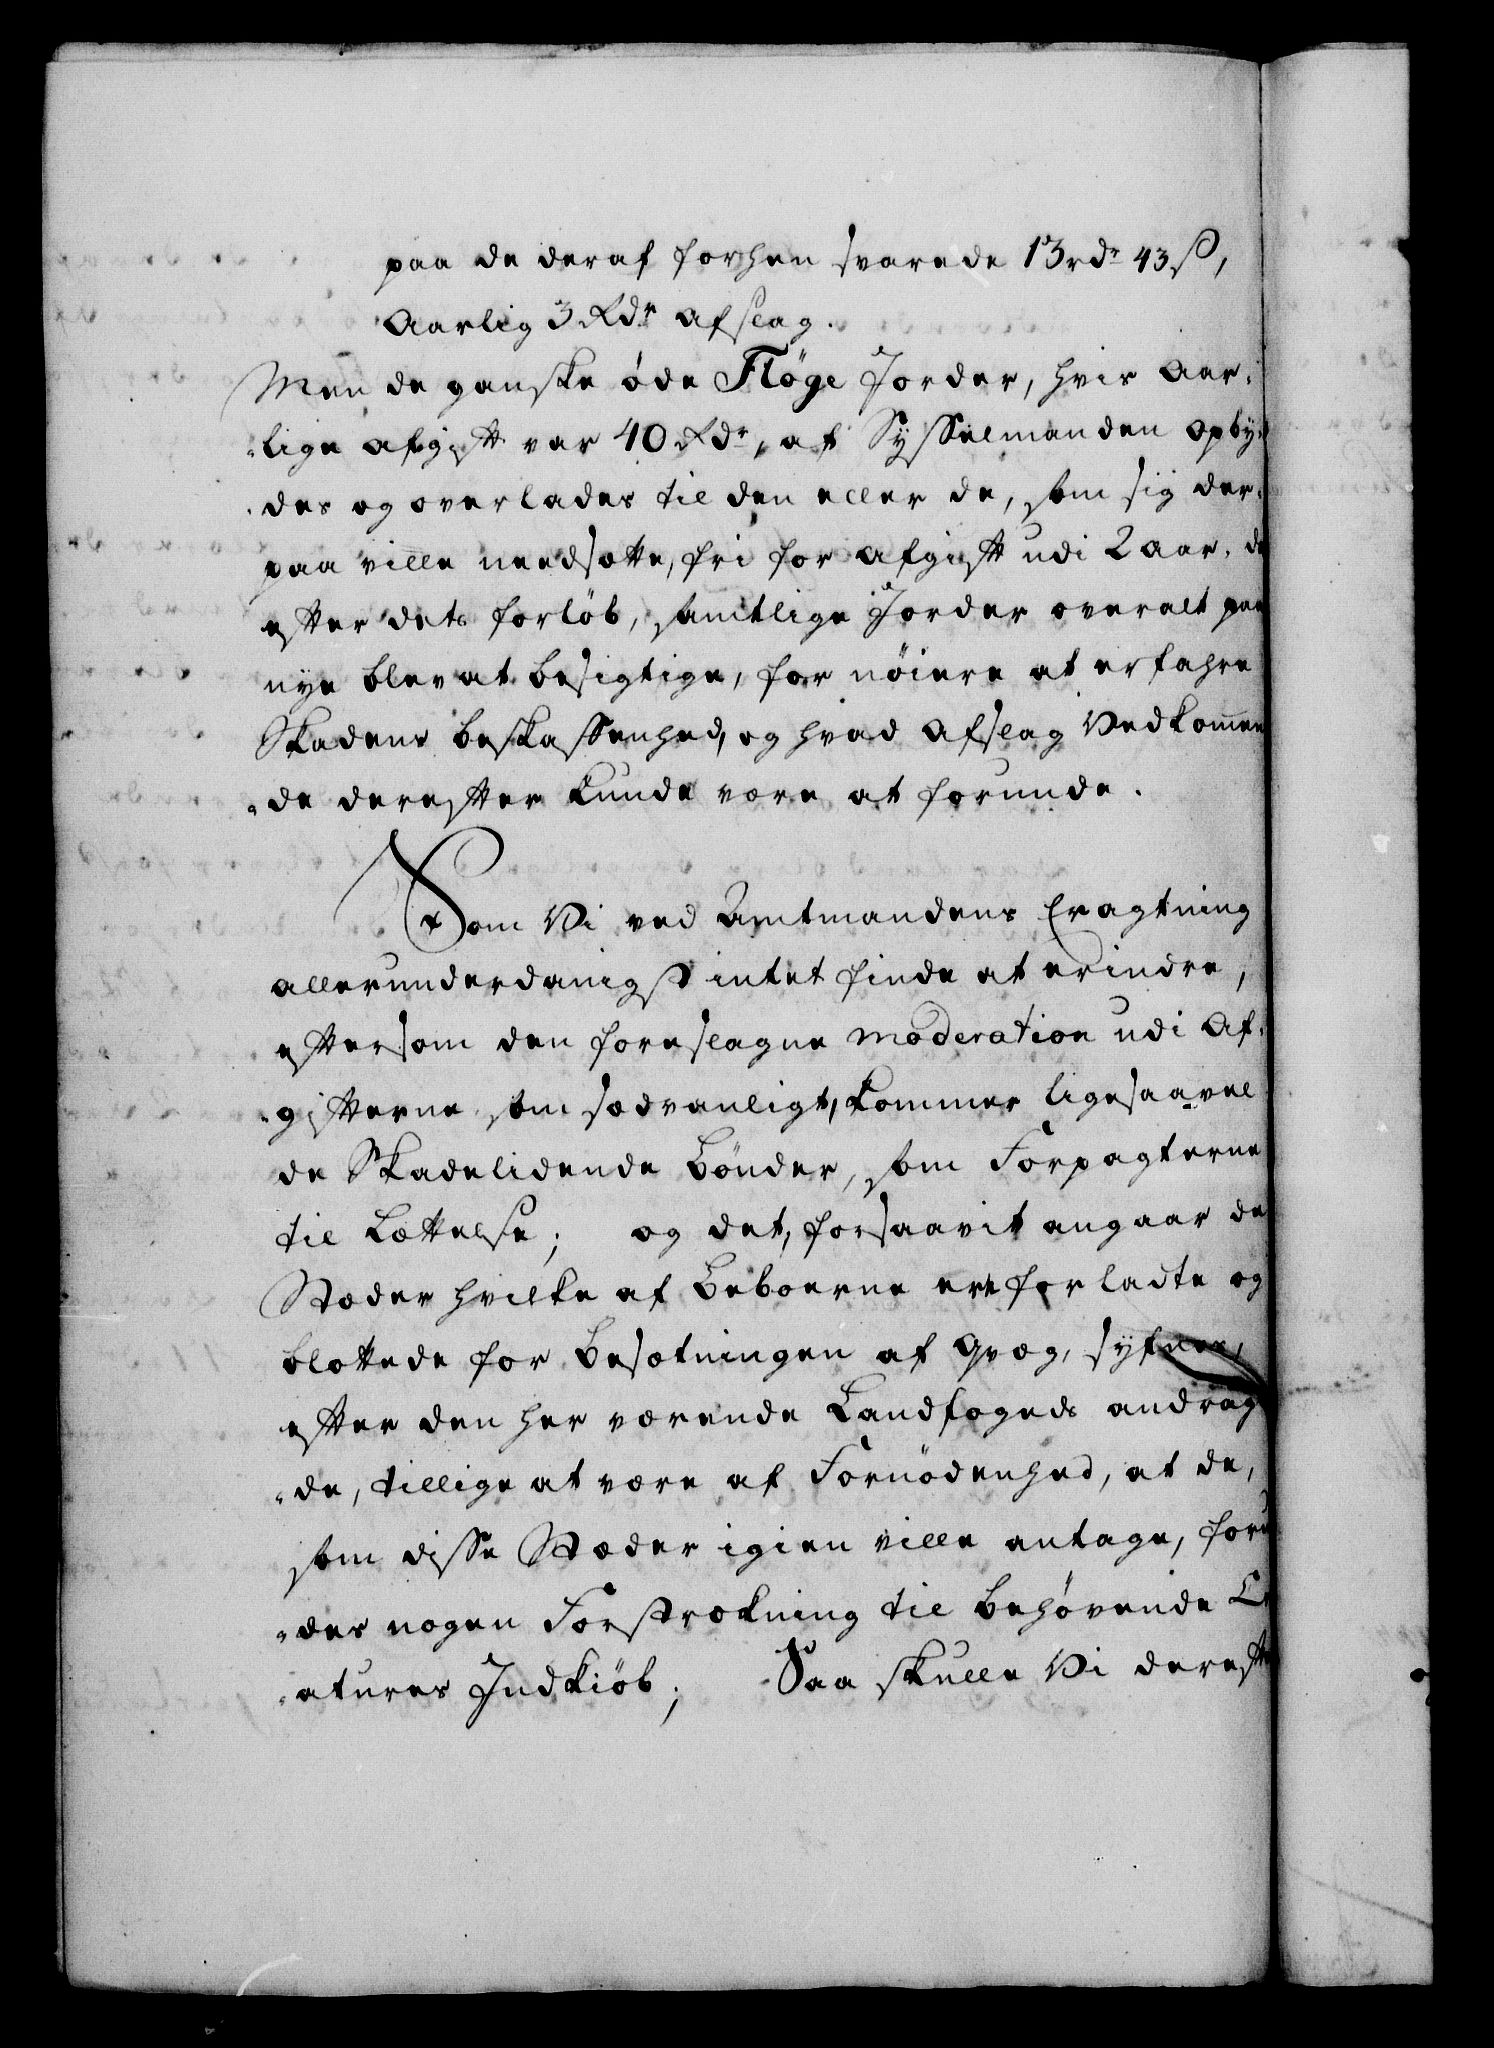 paa de deraf forhen svarede 13 rdr 43 ß,
Aarlig 3 Rdr Afslag.
Men de ganske øde Fløge Jorder, hvis Aar-
-lige Afgift var 40 Rdr, af Sysselmanden opby-
des og overlades til den eller de, som sig der-
paa ville needsætte, fri for Afgift udi 2 Aar, da
efter dets forløb, samtlige Jorder overalt paa
nye blev at besigtige, for nøiere at erfahre
Skadens beskaffenhed, og hvad Afslag Vedkommen
-de derefter kunde være at forunde.
Som Vi ved Amtmandens Eragtning
allerunderdanigst intet finde at erindre,
eftersom den foreslagne moderation udi Af-
-gifterne som sædvanligt, kommer ligesaavel
de Skadelidende Bønder, som Forpagterne
til Lættelse; og det, forsaavit angaar de
Stæder hvilke af Beboerne ere forladte og
blottede for Besætningen af Qvæg, synes,
efter den her værende Landfogeds andrag
-de, tillige at være af Fornødenhed, at de,
som disse Stæder igien ville antage, forun
-des nogen Forstrækning til behøvende
-aturers Indkiøb; Saa skulle Vi dereft